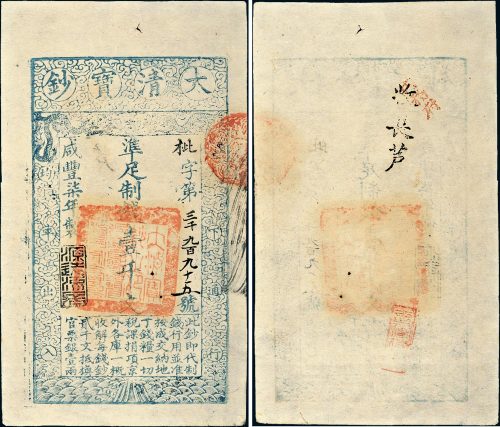 大清寶鈔
天下通行
枇字第三千九百九十五號
準足制錢壹千文
咸豐柒年
均平出入
此鈔即代制
錢行用並准
按成交納地
丁錢糧一切
稅課捐項京
外各庫一概
收解每錢鈔
貳千文抵換
官票銀壹兩
长芦